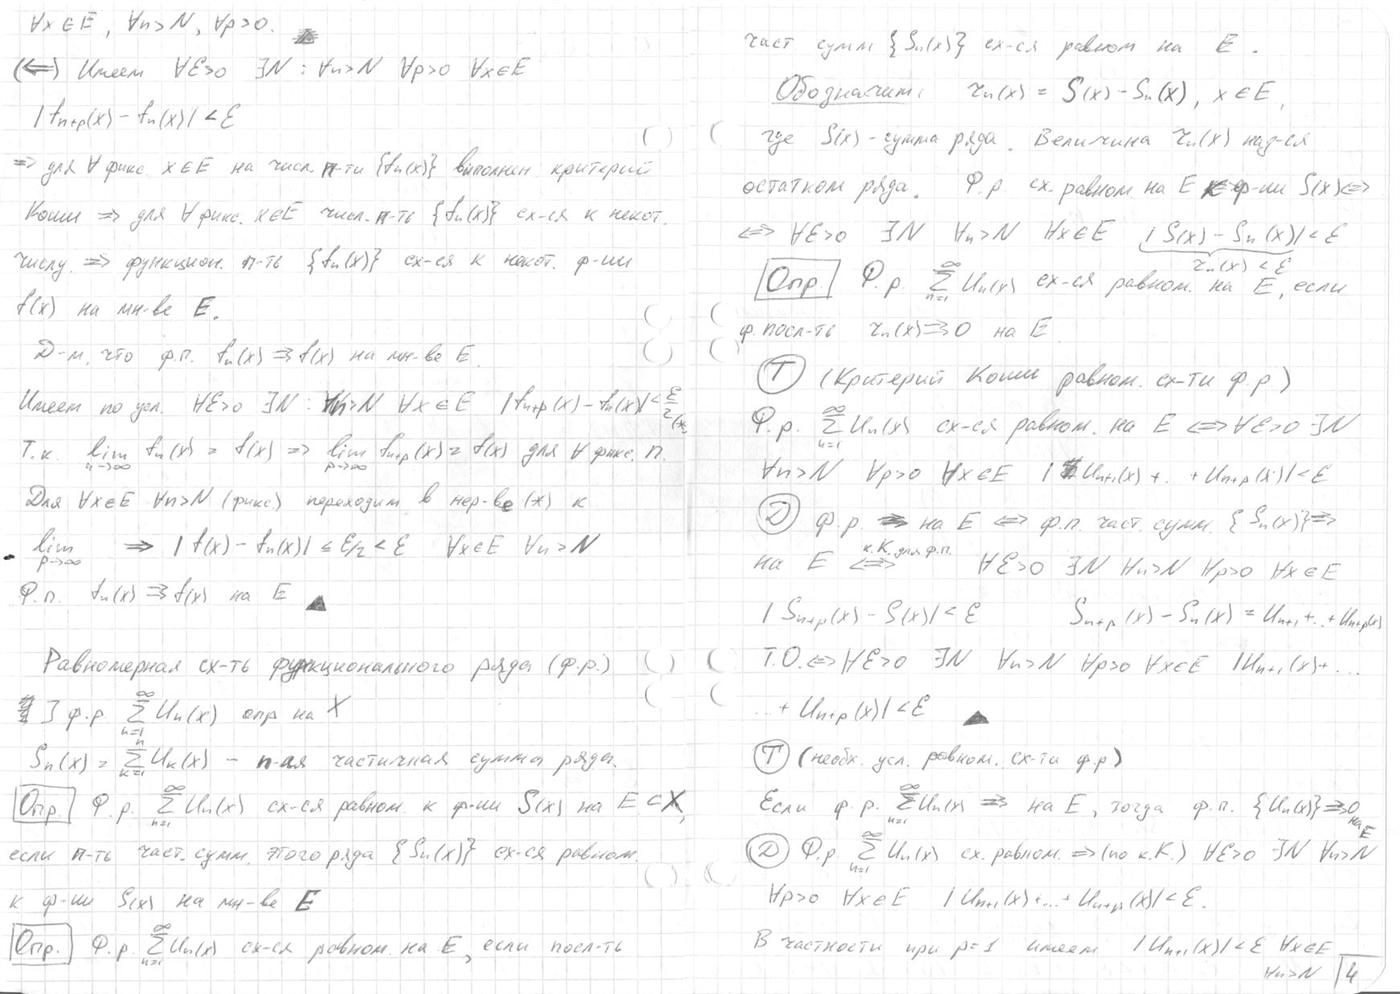 ∀x∈E, ∀n>N, ∀p>0.
(⇐) Имеем ∀ε>0 ∃N : ∀n>N ∀p>0 ∀x∈E
|fn+p(x) - fn(x)| < ε
⇒ для ∀ фикс. x∈E на числ. п-ти {fn(x)} выполнен критерий
Коши ⇒ для ∀ фикс. x∈E числ. п-ть {fn(x)} сх-ся к некот.
числу. ⇒ функцион. п-ть {fn(x)} сх-ся к некот. ф-ии
f(x) на мн-ве E.
Д-м, что ф.п. fn(x) ⇉ f(x) на мн-ве E.
Имеем по усл. ∀ε>0 ∃N : ∀n>N ∀x∈E |fn+p(x) - fn(x)| < ε/2 (*)
Т.к. lim n→∞ fn(x) = f(x) ⇒ lim p→∞ fn+p(x) = f(x) для ∀ фикс. п.
Для ∀x∈E ∀n>N (фикс) переходим в нер-ве (*) к
lim p→∞ ⇒ |f(x) - fn(x)| ≤ ε/2 < ε ∀x∈E ∀n>N
Ф.п. fn(x) ⇉ f(x) на E ▲
Равномерная сх-ть функционального ряда (ф.р.)
] ф.р. ∞∑n=1 Un(x) опр на X
Sn(x) = n∑k=1 Uk(x) - n-ая частичная сумма ряда.
Опр. Ф.р. ∞∑n=1 Un(x) сх-ся равном. к ф-ии S(x) на E⊂X,
если п-ть част. сумм. этого ряда {Sn(x)} сх-ся равном.
к ф-ии S(x) на мн-ве E
Опр. Ф.р. ∞∑n=1 Un(x) сх-ся равном. на E, если посл-ть
част сумм {Sn(x)} сх-ся равном на E.
Обозначим: rn(x) = S(x) - Sn(x), x∈E,
где S(x) - сумма ряда. Величина rn(x) наз-ся
остатком ряда. Ф.р сх. равном. на E к ф-ии S(x) ⇔
⇔ ∀ε>0 ∃N ∀n>N ∀x∈E |S(x) - Sn(x)| < ε
rn(x) < ε
Опр. Ф.р. ∞∑n=1 Un(x) сх-ся равном. на E, если
ф.посл-ть rn(x) ⇉ 0 на E
Т (Критерий Коши равном. сх-ти ф.р)
Ф.р. ∞∑n=1 Un(x) сх-ся равном. на E ⇔ ∀ε>0 ∃N
∀n>N ∀p>0 ∀x∈E |Un+1(x)+..+Un+p(x)| < ε
Д Ф.р. ⇉ на E ⇔ ф.п. част. сумм. {Sn(x)} ⇉
на E к.К. для ф.п. ⇔ ∀ε>0 ∃N ∀n>N ∀p>0 ∀x∈E
|Sn+p(x) - S(x)| < ε Sn+p(x) - Sn(x) = Un+1+..+Un+p(x)
Т.О. ⇔ ∀ε>0 ∃N ∀n>N ∀p>0 ∀x∈E |Un+1(x)+...
...+Un+p(x)| < ε ▲
Т (необх. усл. равном. сх-ти ф.р)
Если ф.р. ∞∑n=1 Un(x) ⇉ на E, тогда ф.п. {Un(x)} ⇉ 0 на E
Д Ф.р. ∞∑n=1 Un(x) сх. равном. ⇒ (по к.К.) ∀ε>0 ∃N ∀n>N
∀p>0 ∀x∈E |Un+1(x)+...+Un+p(x)| < ε.
В частности при p=1 имеем |Un+1(x)| < ε ∀x∈E
∀n>N 4